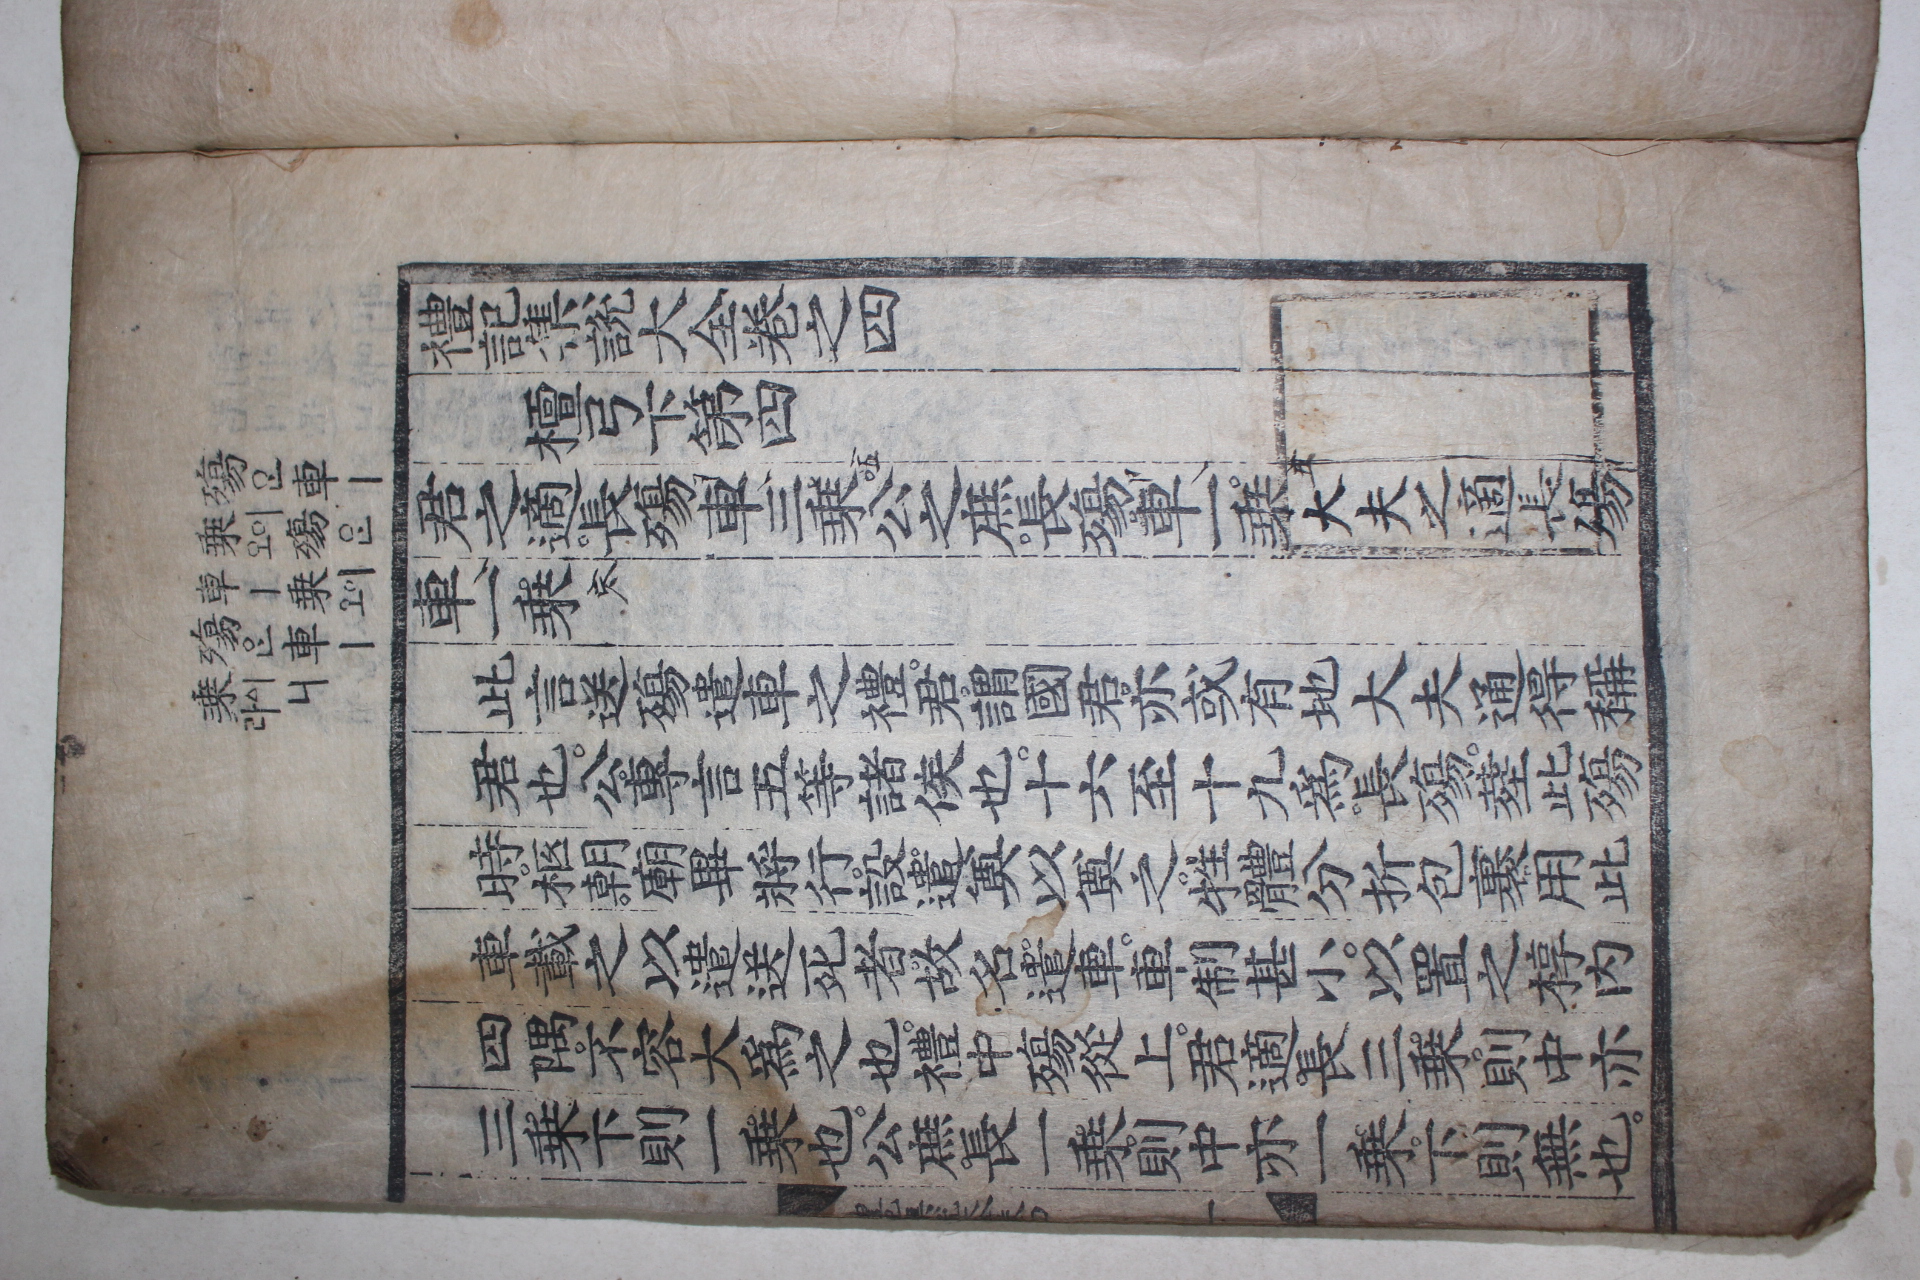 禮記集說大全卷之四
檀弓下第四
君之適長殤車三乘公之庶長殤車一乘大夫之適長殤
車一乘
此言送殤遣車之禮君謂國君亦或有地大夫通得稱
君也公專言五等諸侯也十六至十九爲長殤葬此殤
時柩朝廟畢將行設遣奠以奠之牲體分折包裹用此
車載之以遣送死者故名遣車車制甚小以置之椁內
四隅不容大爲之也禮中殤從上君適長三乘則中亦
三乘下則一乘也公庶長一乘則中亦一乘下則無也
殤인車ㅣ
乘요이殤인
車ㅣ乘요이
殤인車ㅣ
乘라시니